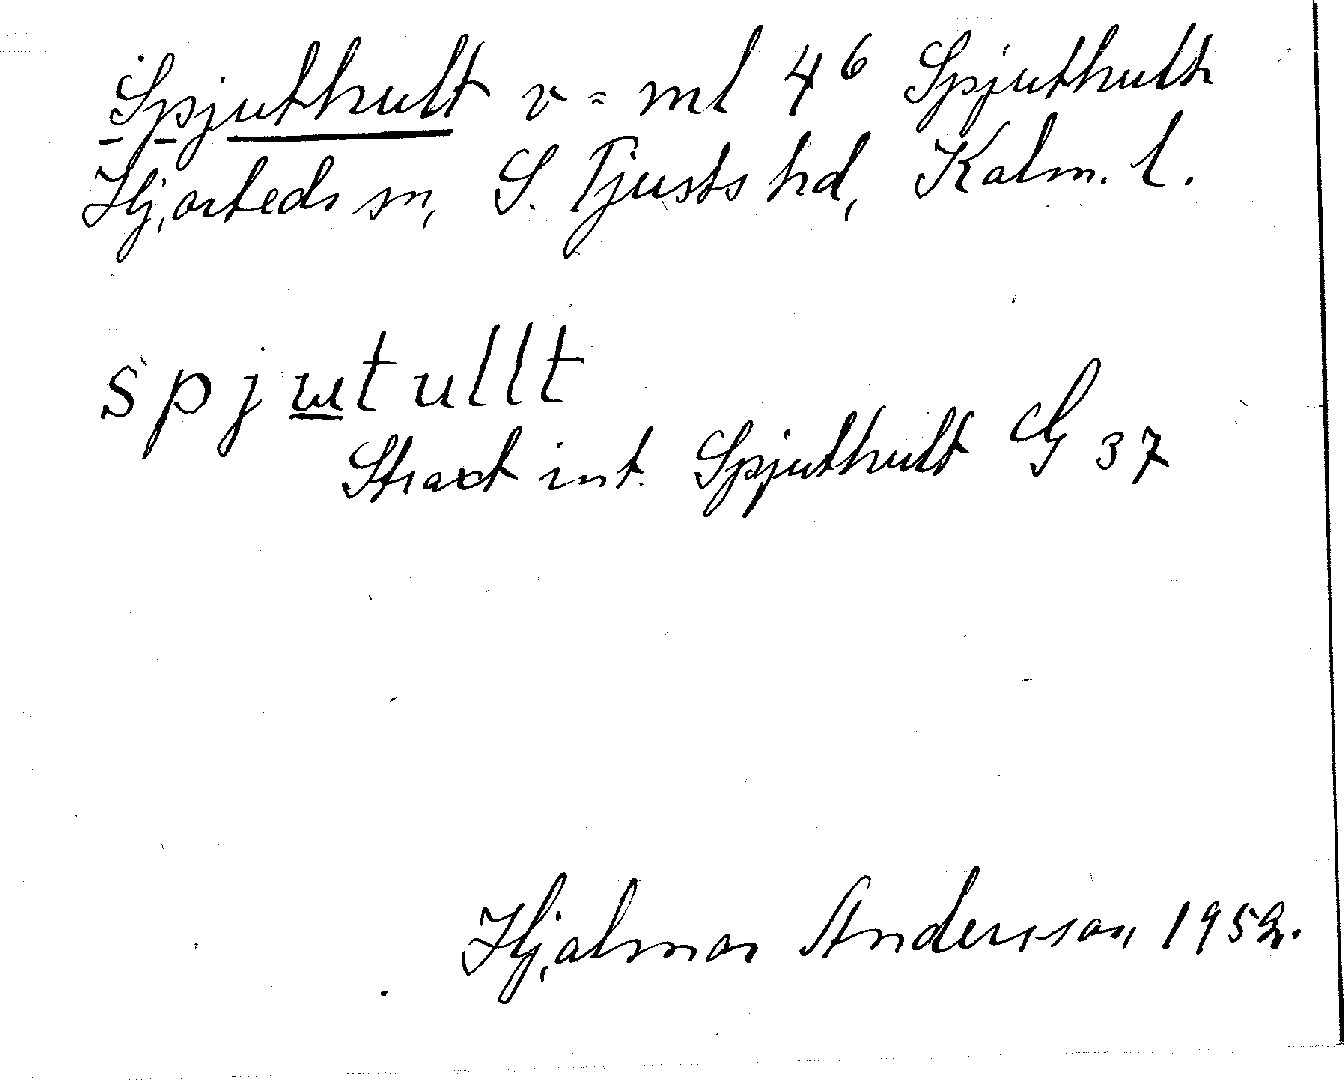 Spjuthult v = ml 4⁶ Spjuthult
Hjorteds sn, S. Tjusts hd, Kalm. l.
spjɯtullt
Straxt int. Spjuthult G 37
Hjalmar Andersson 1952.